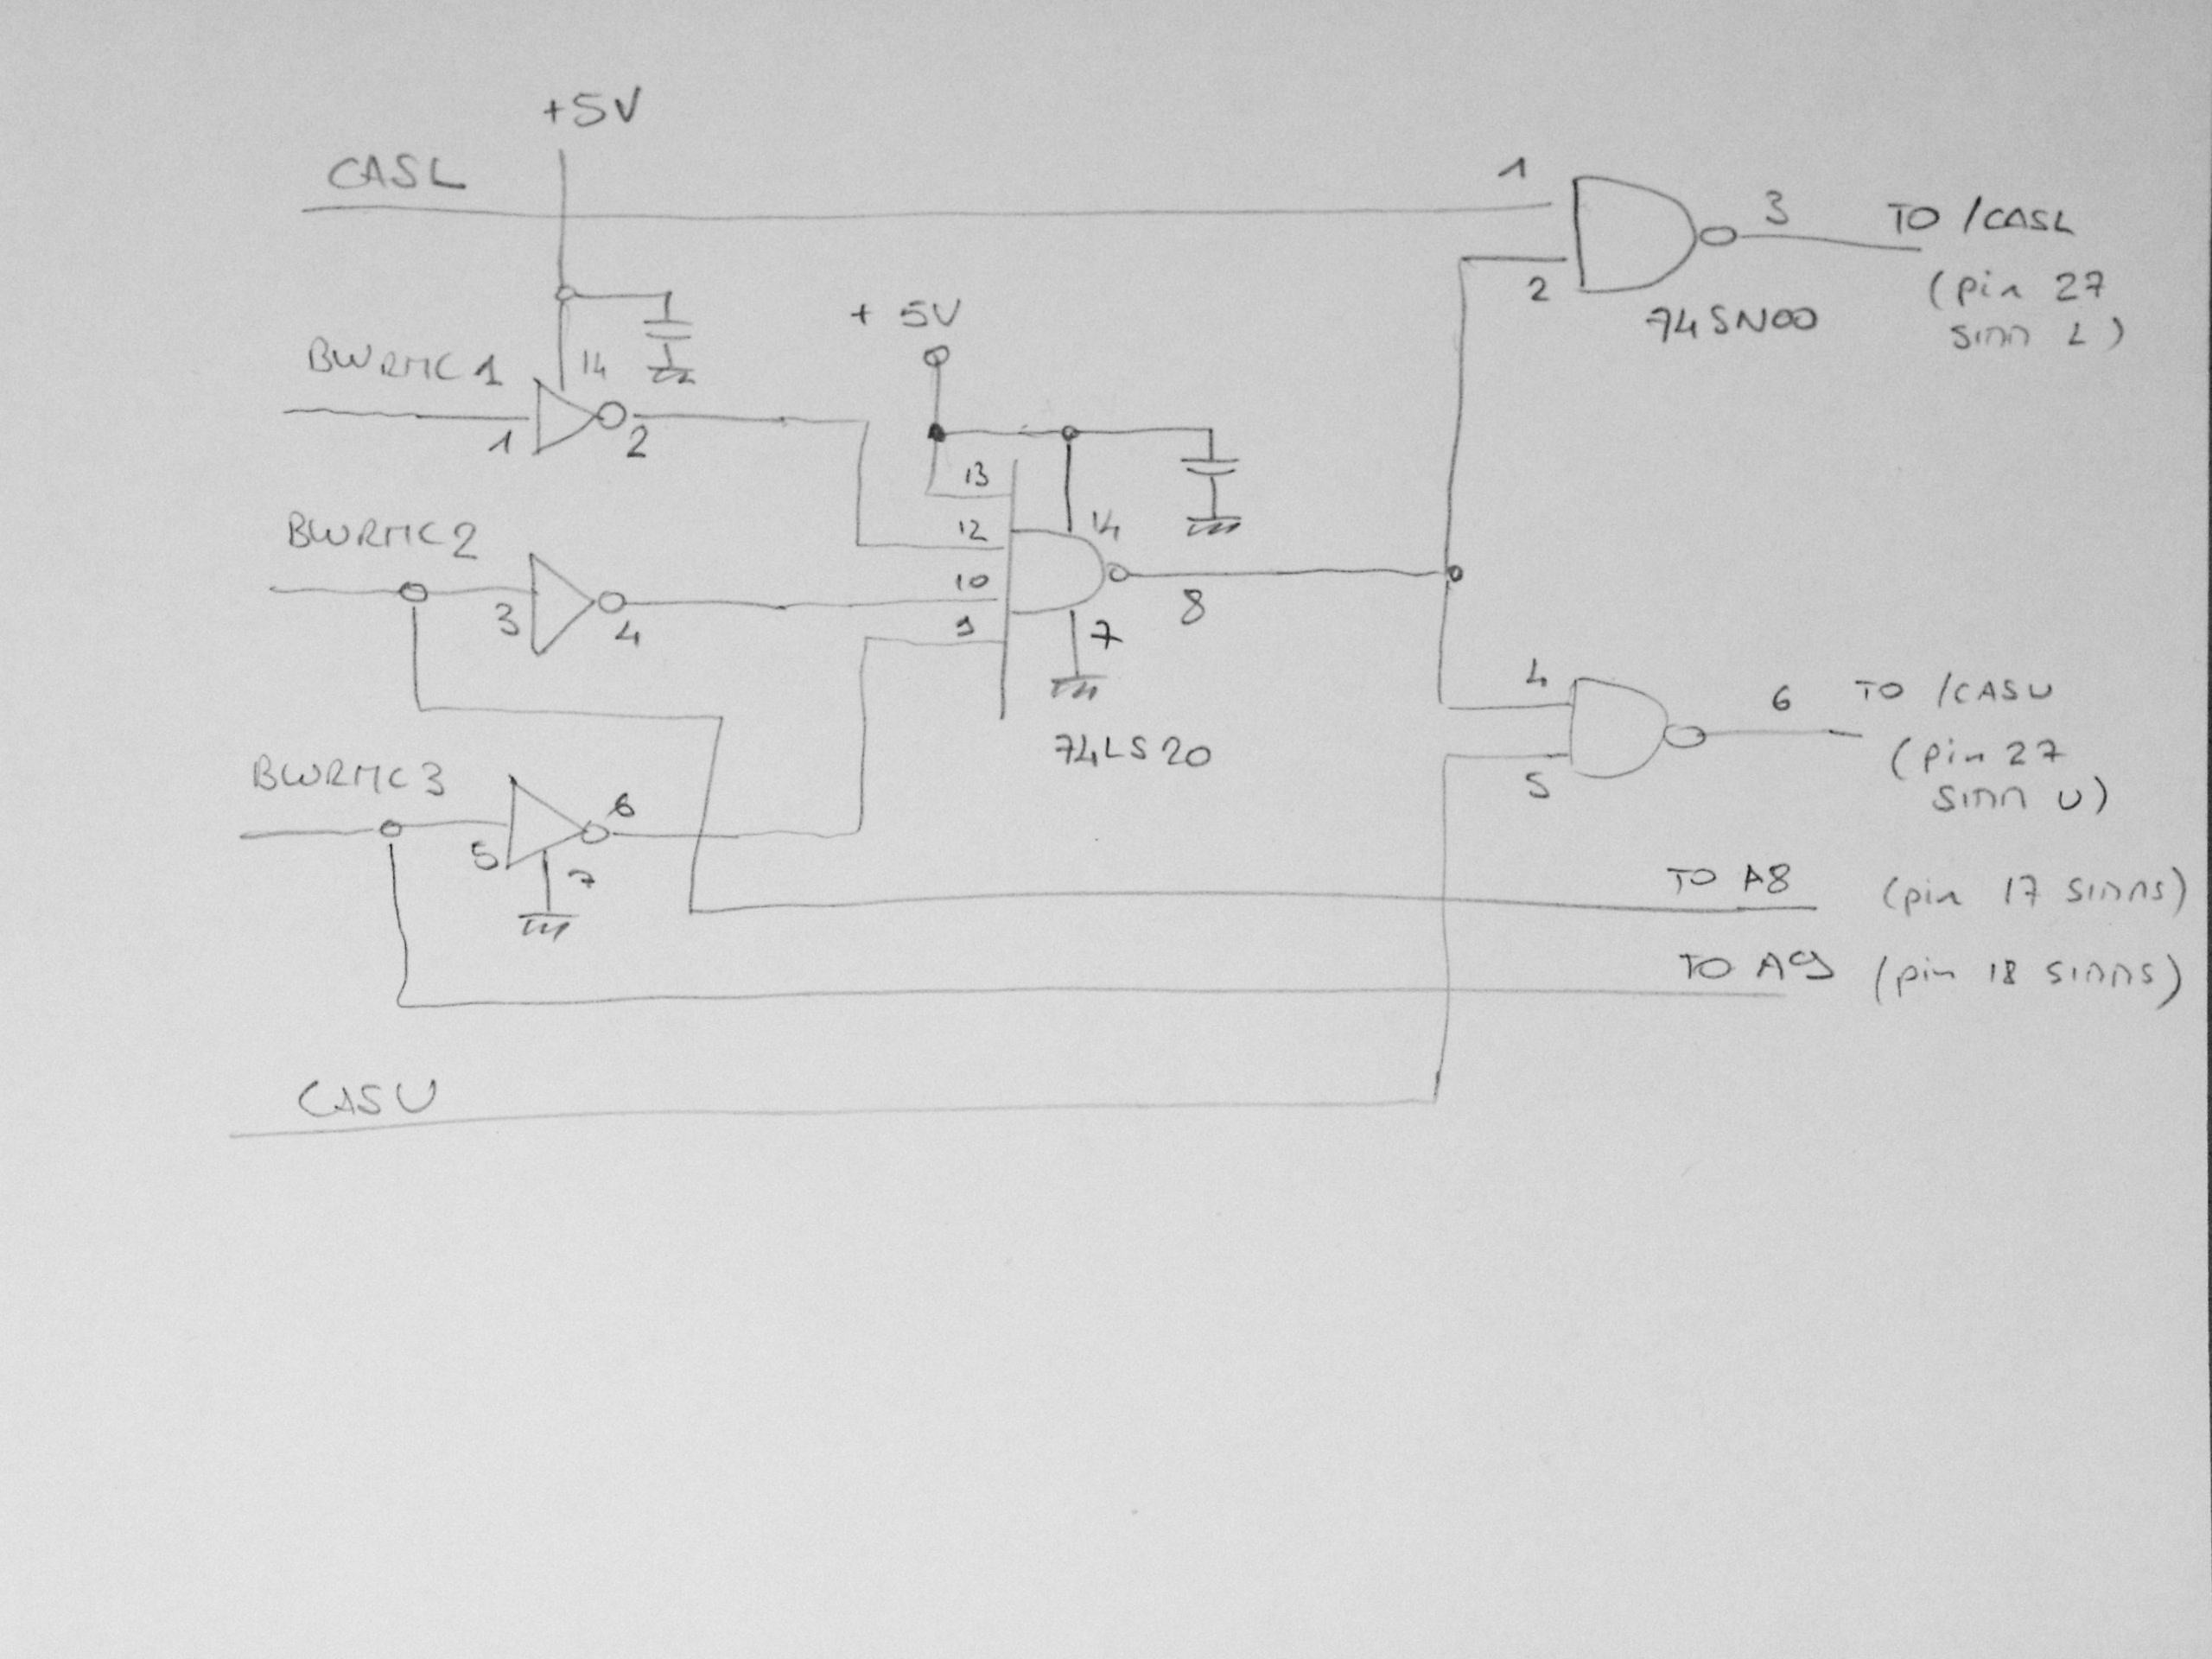 +5V
CASL
1
3
TO /CASL
2
(pin 27
simm L)
74SN00
+ 5V
BWRMC1
14
1
2
13
12
14
BWRMC2
10
3
4
9
8
7
74LS20
4
6
TO /CASU
5
(pin 27
simm U)
BWRMC3
6
5
7
TO A8 (pin 17 simms)
TO A9 (pin 18 simms)
CASU